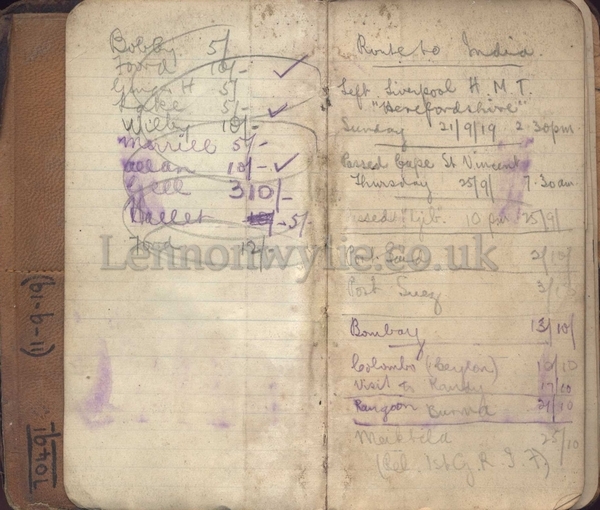 Bobby 5/
Ford 10/-
Ginger H 5/
Lake 5/-
Wilby 10/-
Merrill 5/-
10/-
Gell 310/-
Hallet -5/-
Ford 12/-
(11-9-19)
70491
Route to India.
Left Liverpool H.M.T.
"Herefordshire"
Sunday 21/9/19 2.30pm
Passed Cape St Vincent
Thursday 25/9/ 7.30am
Passed "Gib." 10 pm 25/9/
Port Said 2/10
Port Suez 3/10
Bombay 13/10/
Colombo (Ceylon)
Visit to Kandy 17/10
Rangoon Burma 21/10
Meiktila 25/10
1st G. R. I. F)
Lennonwylie.co.uk